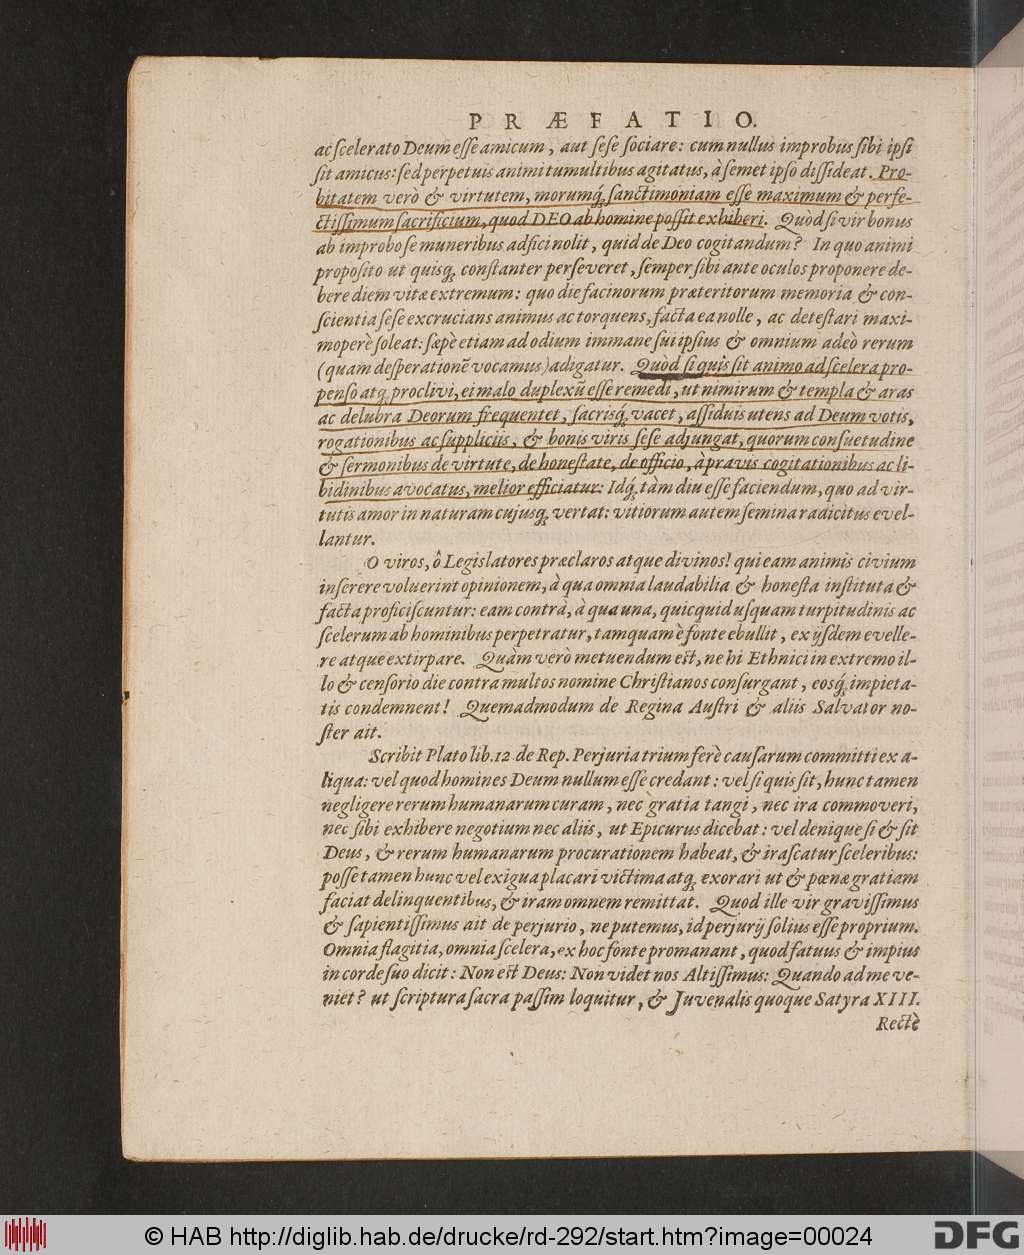 PRÆFATIO.
ac scelerato Deum esse amicum, aut sese sociare: cum nullus improbus sibi ipsi
sit amicus: sed perpetuis animi tumultibus agitatus, à semet ipso dissideat. Pro-
bitatem verò & virtutem, morumq́; sanctimoniam esse maximum & perfe-
ctissimum sacrificium, quod DEO ab homine possit exhiberi. Quòd si vir bonus
ab improbo se muneribus adfici nolit, quid de Deo cogitandum? In quo animi
proposito ut quisq; constanter perseveret, semper sibi ante oculos proponere de-
bere diem vitæ extremum: quo die facinorum præteritorum memoria & con-
scientia sese excrucians animus ac torquens, facta ea nolle, ac detestari maxi-
moperè soleat: sæpè etiam ad odium immane sui ipsius & omnium adeò rerum
(quam desperationē vocamus) adigatur. Quòd si quis sit animo ad scelera pro-
penso atq; proclivi, ei malo duplex ū esse remedi, ut nimirum & templa & aras
ac delubra Deorum frequentet, sacrisq́; vacet, assiduis utens ad Deum votis,
rogationibus ac suppliciis, & bonis viris sese adjungat, quorum consuetudine
& sermonibus de virtute, de honestate, de officio, à pravis cogitationibus ac li-
bidinibus avocatus, melior efficiatur: Idq́; tàm diu esse faciendum, quo ad vir-
tutis amor in naturam cujusq; vertat: vitiorum autem semina radicitus evel-
lantur.
O viros, ô Legislatores præclaros atque divinos! qui eam animis civium
inserere voluerint opinionem, à qua omnia laudabilia & honesta instituta &
facta proficiscuntur: eam contrà, à qua una, quicquid usquam turpitudinis ac
scelerum ab hominibus perpetratur, tamquam è fonte ebullit, ex ijsdem evelle-
re atque extirpare. Quàm verò metuendum est, ne hi Ethnici in extremo il-
lo & censorio die contra multos nomine Christianos consurgant, eosq́; impieta-
tis condemnent! Quemadmodum de Regina Austri & aliis Salvator no-
ster ait.
Scribit Plato lib. 12 de Rep. Perjuria trium ferè causarum committi ex a-
liqua: vel quod homines Deum nullum esse credant: vel si quis sit, hunc tamen
negligere rerum humanarum curam, nec gratia tangi, nec ira commoveri,
nec sibi exhibere negotium nec aliis, ut Epicurus dicebat: vel denique si & sit
Deus, & rerum humanarum procurationem habeat, & irascatur sceleribus:
posse tamen hunc vel exigua placari victima atq; exorari ut & pœnæ gratiam
faciat delinquentibus, & iram omnem remittat. Quod ille vir gravissimus
& sapientissimus ait de perjurio, ne putemus, id perjurij solius esse proprium.
Omnia flagitia, omnia scelera, ex hoc fonte promanant, quod fatuus & impius
in corde suo dicit: Non est Deus: Non videt nos Altissimus: Quando ad me ve-
niet? ut scriptura sacra passim loquitur, & Juvenalis quoque Satyra XIII.
Rectè
© HAB http://diglib.hab.de/drucke/rd-292/start.htm?image=00024
DFG